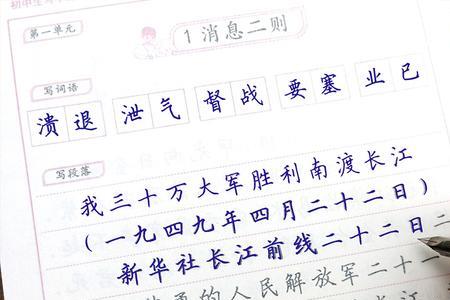 第一单元
1 消息二则
写词语
溃退 泄气 督战 要塞 业已
写段落
我三十万大军胜利南渡长江
（一九四九年四月二十二日）
新华社长江前线二十二日二
英勇的人民解放军二十一